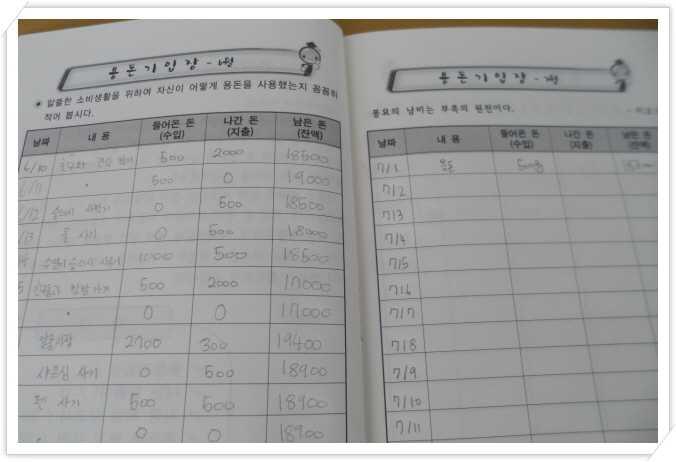 용돈기입장 - 6월
알뜰한 소비생활을 위하여 자신이 어떻게 용돈을 사용했는지 꼼꼼히
적어 봅시다.
날짜 내 용 들어온 돈 (수입) 나간 돈 (지출) 남은 돈 (잔액)
6/10 500 2000 18500
6/11 500 0 19000
6/12 0 500 18500
6/13 사기 0 500 18000
1000 500 18500
사기 500 2000 17000
0 0 17000
알뜰시장 2700 300 19400
샤프심 사기 0 500 18900
펜 사기 500 500 18900
0 0 18900
용돈기입장 - 7월
풍요의 낭비는 부족의 원천이다.
날짜 내 용 들어온 돈 (수입) 나간 돈 (지출) 남은 돈 (잔액)
7/1 용돈
7/2
7/3
7/4
7/5
7/6
7/7
7/8
7/9
7/10
7/11